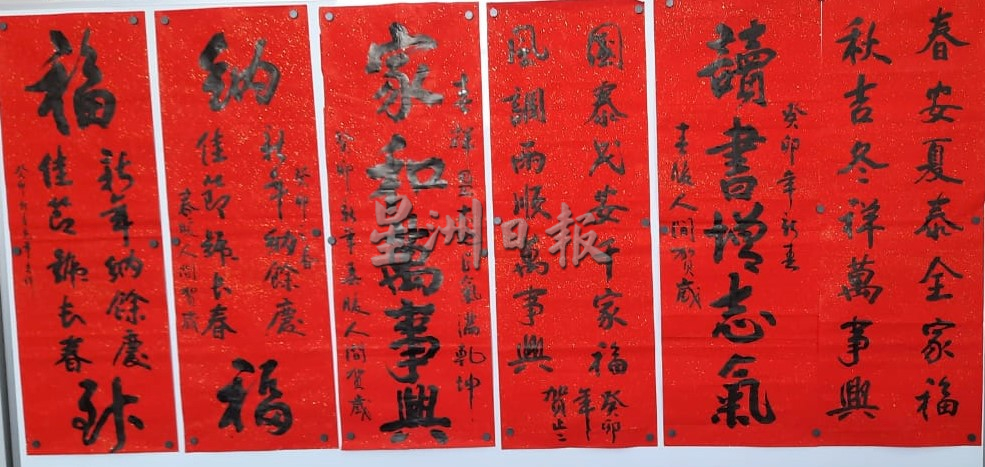 春安夏泰全家福
秋吉冬祥萬事興
癸卯年新春
讀書增志氣
春暖人間賀歲
國泰民安千家福
風調雨順萬事興
癸卯
年
賀正
家和萬事興
癸卯新年春暖人間賀歲
新年納餘慶
佳節號長春
納
福
春暖人間賀歲
福
新年納餘慶
佳節號長春
星洲日報